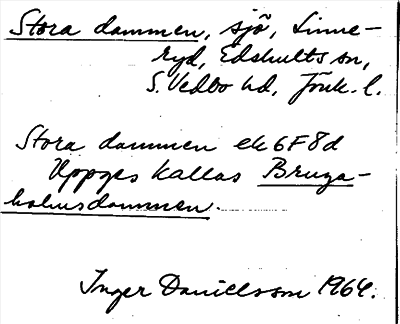 Stora dammen, sjö, Linne-
ryd, Edshults sn,
S. Vedbo hd, Jönk. l.
Stora dammen ek 6F8d
Uppges kallas Bruza-
holmsdammen.
Inger Danielsson 1964.